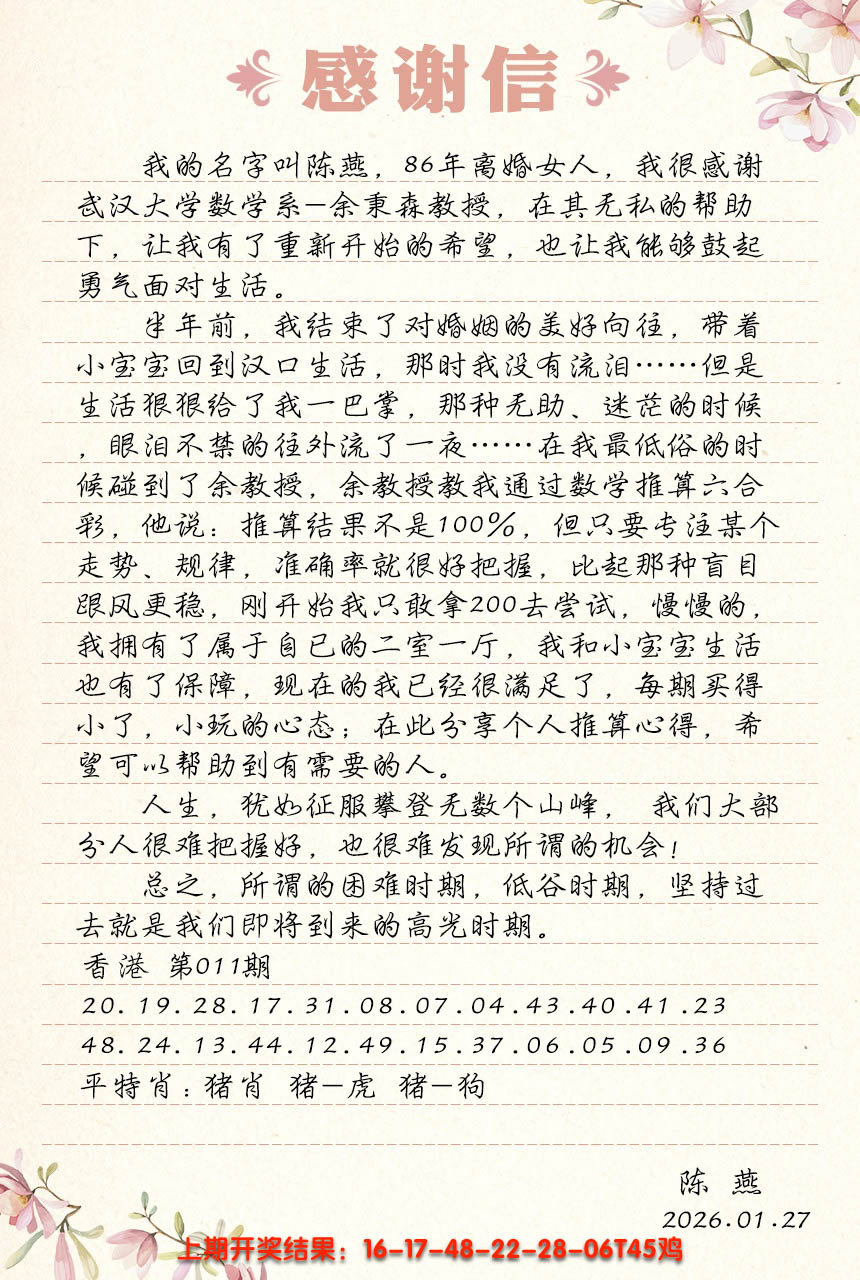 感谢信
我的名字叫陈燕，86年离婚女人，我很感谢
武汉大学数学系—余秉森教授，在其无私的帮助
下，让我有了重新开始的希望，也让我能够鼓起
勇气面对生活。
半年前，我结束了对婚姻的美好向往，带着
小宝宝回到汉口生活，那时我没有流泪……但是
生活狠狠给了我一巴掌，那种无助、迷茫的时候
，眼泪不禁的往外流了一夜……在我最低俗的时
候碰到了余教授，余教授教我通过数学推算六合
彩，他说：推算结果不是100%，但只要专注某个
走势、规律，准确率就很好把握，比起那种盲目
跟风更稳，刚开始我只敢拿200去尝试，慢慢的，
我拥有了属于自已的二室一厅，我和小宝宝生活
也有了保障，现在的我已经很满足了，每期买得
小了，小玩的心态；在此分享个人推算心得，希
望可以帮助到有需要的人。
人生，犹如征服攀登无数个山峰， 我们大部
分人很难把握好，也很难发现所谓的机会！
总之，所谓的困难时期，低谷时期，坚持过
去就是我们即将到来的高光时期。
香港 第011期
20.19.28.17.31.08.07.04.43.40.41.23
48.24.13.44.12.49.15.37.06.05.09.36
平特肖：猪肖 猪—虎 猪—狗
陈 燕
2026.01.27
上期开奖结果：16-17-48-22-28-06T45鸡